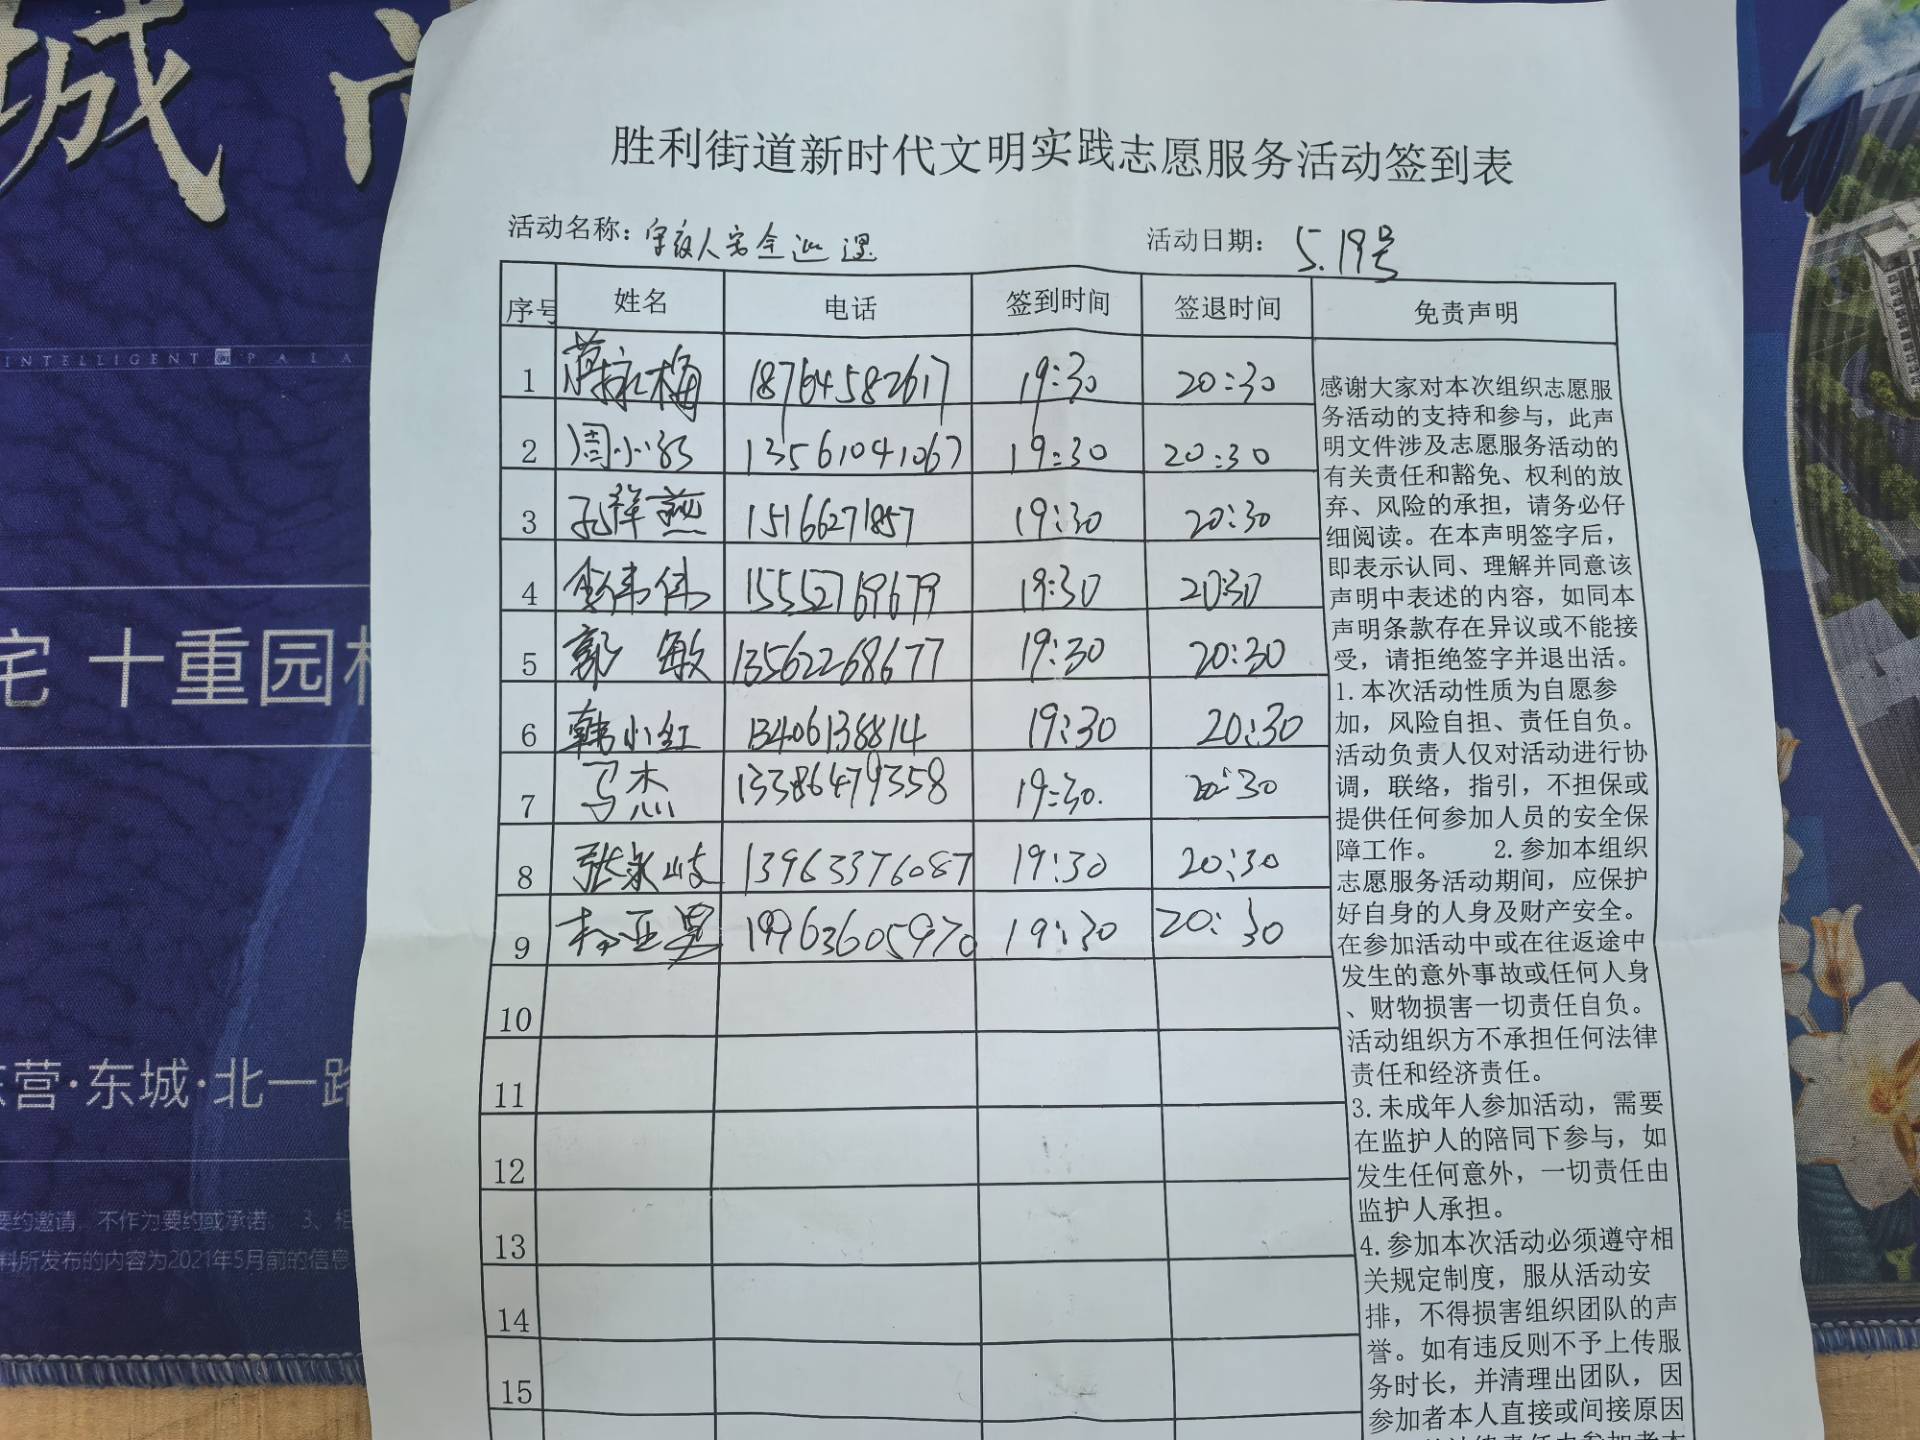 城
INTELLIGENT PALA
宅 十重园林
东营·东城·北一路
要约邀请，不作为要约或承诺； 3、相
料所发布的内容为2021年5月前的信息
胜利街道新时代文明实践志愿服务活动签到表
活动名称：守夜人安全巡逻 活动日期：5.19号
序号 姓名 电话 签到时间 签退时间 免责声明
1 蒋永梅 18764582617 19:30 20:30
2 周小红 13561041067 19:30 20:30
3 孔祥燕 15166271857 19:30 20:30
4 李伟伟 15552769679 19:30 20:30
5 郭敏 13562268677 19:30 20:30
6 韩小红 13406138814 19:30 20:30
7 马杰 13386479358 19:30. 20:30
8 张永岐 13963376087 19:30 20:30
9 杨亚男 19963605970 19:30 20:30
10
11
12
13
14
15
感谢大家对本次组织志愿服
务活动的支持和参与，此声
明文件涉及志愿服务活动的
有关责任和豁免、权利的放
弃、风险的承担，请务必仔
细阅读。在本声明签字后，
即表示认同、理解并同意该
声明中表述的内容，如同本
声明条款存在异议或不能接
受，请拒绝签字并退出活。
1.本次活动性质为自愿参
加，风险自担、责任自负。
活动负责人仅对活动进行协
调，联络，指引，不担保或
提供任何参加人员的安全保
障工作。 2.参加本组织
志愿服务活动期间，应保护
好自身的人身及财产安全。
在参加活动中或在往返途中
发生的意外事故或任何人身
、财物损害一切责任自负。
活动组织方不承担任何法律
责任和经济责任。
3.未成年人参加活动，需要
在监护人的陪同下参与，如
发生任何意外，一切责任由
监护人承担。
4.参加本次活动必须遵守相
关规定制度，服从活动安
排，不得损害组织团队的声
誉。如有违反则不予上传服
务时长，并清理出团队，因
参加者本人直接或间接原因